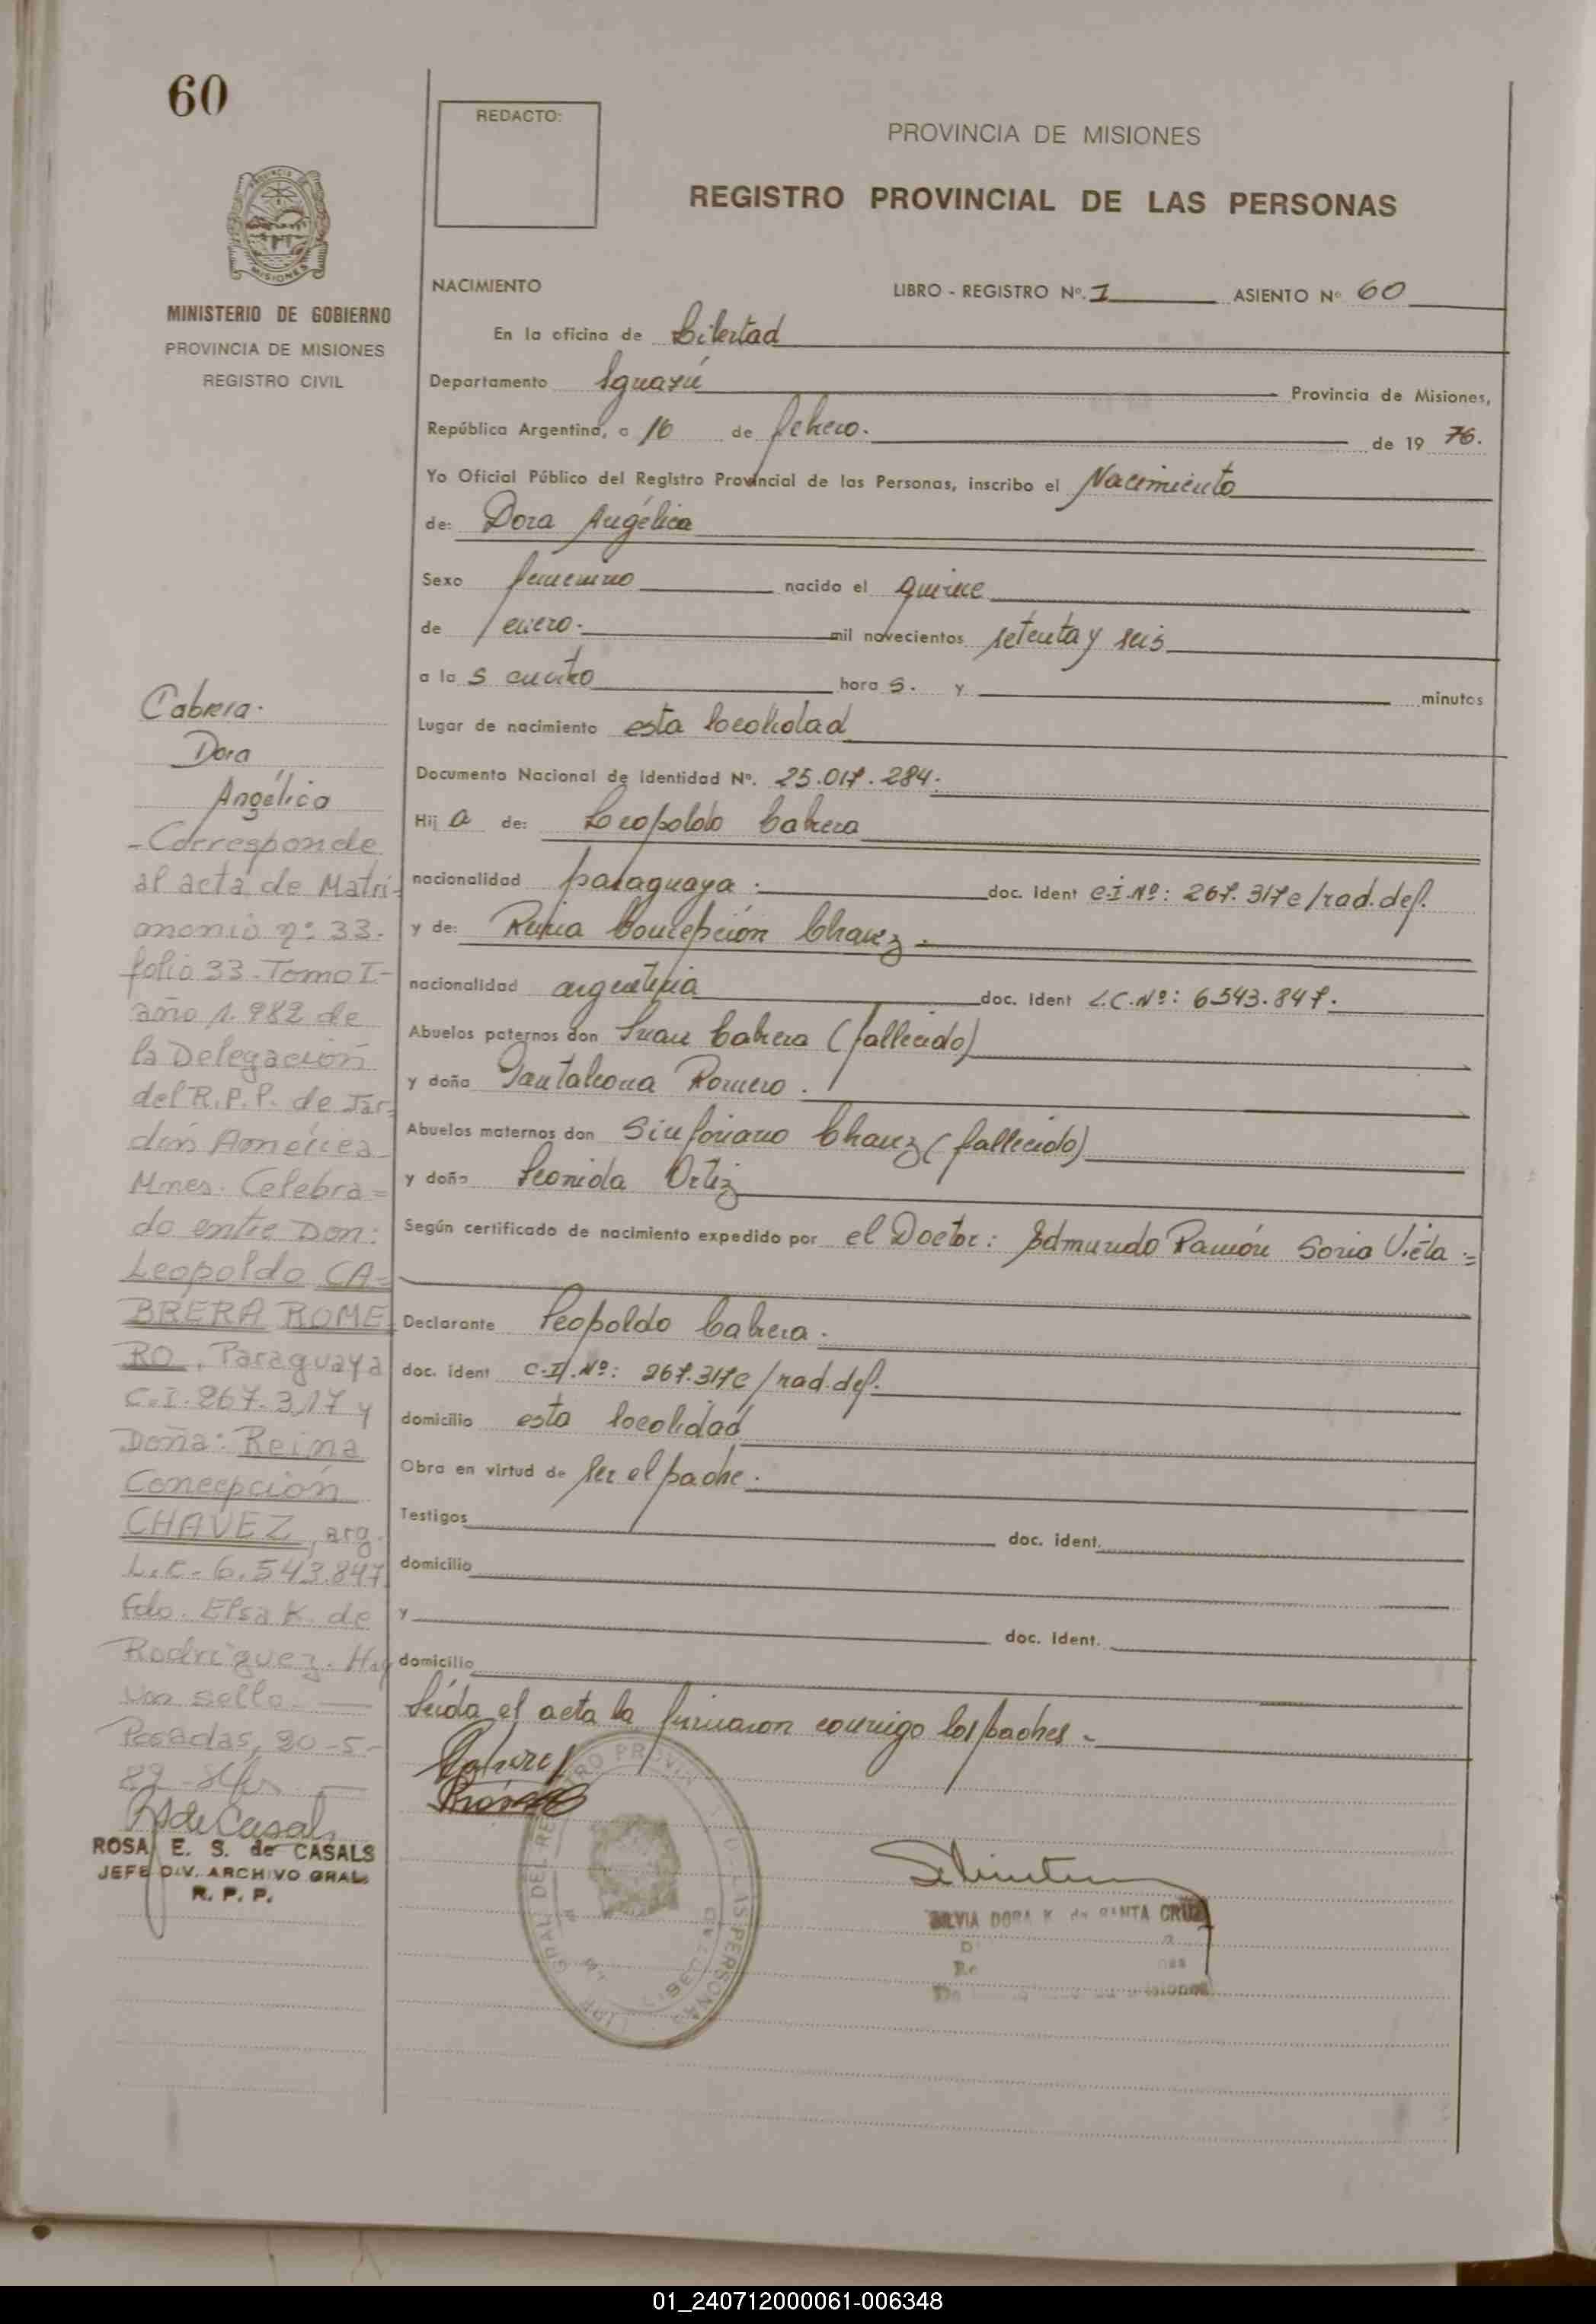 60
REDACTO:
PROVINCIA DE MISIONES
REGISTRO PROVINCIAL DE LAS PERSONAS
MINISTERIO DE GOBIERNO
PROVINCIA DE MISIONES
REGISTRO CIVIL
NACIMIENTO LIBRO - REGISTRO Nº. 1 ASIENTO Nº 60
En la oficina de Libertad
Departamento Iguazú Provincia de Misiones,
República Argentina, a 16 de febrero. de 19 76.
Yo Oficial Público del Registro Provincial de las Personas, inscribo el Nacimiento
de: Dora Angélica
Sexo femenino nacido el quince
de enero. mil novecientos setenta y seis
a la s cuatro hora s. y minutos
Lugar de nacimiento esta localidad
Documento Nacional de Identidad Nº. 25.017.284.
Hij a de: Leopoldo Cabrera
nacionalidad paraguaya. doc. Ident C.I.Nº: 267.317 e/rad.def.
y de: Reina Concepción Chavez.
nacionalidad argentina doc. Ident L.C.Nº: 6543.847.
Abuelos paternos don Juan Cabrera (fallecido)
y doña Pantaleona Romero.
Abuelos maternos don Sinforiano Chavez (fallecido)
y doña Leonida Ortiz
Según certificado de nacimiento expedido por el Doctor: Edmundo Ramón Soria Vieta.=
Declarante Leopoldo Cabrera.
doc. ident C.I.Nº: 267.317 e/rad.def.
domicilio esta localidad
Obra en virtud de ser el padre.
Testigos doc. ident.
domicilio
y doc. Ident.
domicilio
Leída el acta la firmaron conmigo los padres.-
Cabrera.
Dora
Angélica
-Corresponde
al acta de Matri-
monio nº 33.
folio 33-Tomo I-
año 1.982 de
la Delegación
del R.P.P. de Jar-
dín América
Mnes. Celebra=
do entre Don:
Leopoldo CA=
BRERA ROME
RO, Paraguaya
C.I.267.317 y
Doña: Reina
Concepción
CHAVEZ, arg.
L.C. 6.543.847
Fdo. Elsa K. de
Rodriguez. Hay
un sello.
Posadas, 20-5-
82
RSdeCasals
ROSA E. S. de CASALS
JEFE DIV. ARCHIVO GRAL
R. P. P.
SILVIA DORA K. de SANTA CRUZ
01_240712000061-006348